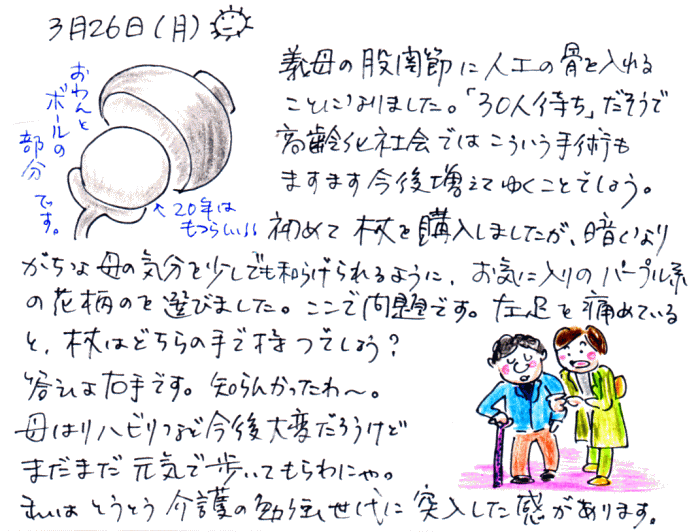 3月26日(月)
おわんと
ボールの
部分です。
20年は
もつらしい!!
義母の股関節に人工の骨を入れる
ことになりました。「30人待ち」だそうで
高齢化社会ではこういう手術も
ますます今後増えてゆくことでしょう。
初めて杖を購入しましたが、暗くなり
がちな母の気分を少しでも和らげられるように、お気に入りのパープル系
の花柄のを選びました。ここで問題です。左足を痛めている
と、杖はどちらの手で持つでしょう?
答えは右手です。知らんかったわ〜。
母はリハビリなど今後大変だろうけど
まだまだ元気で歩いてもらわにゃ。
私はとうとう介護の勉強世代に突入した感があります。